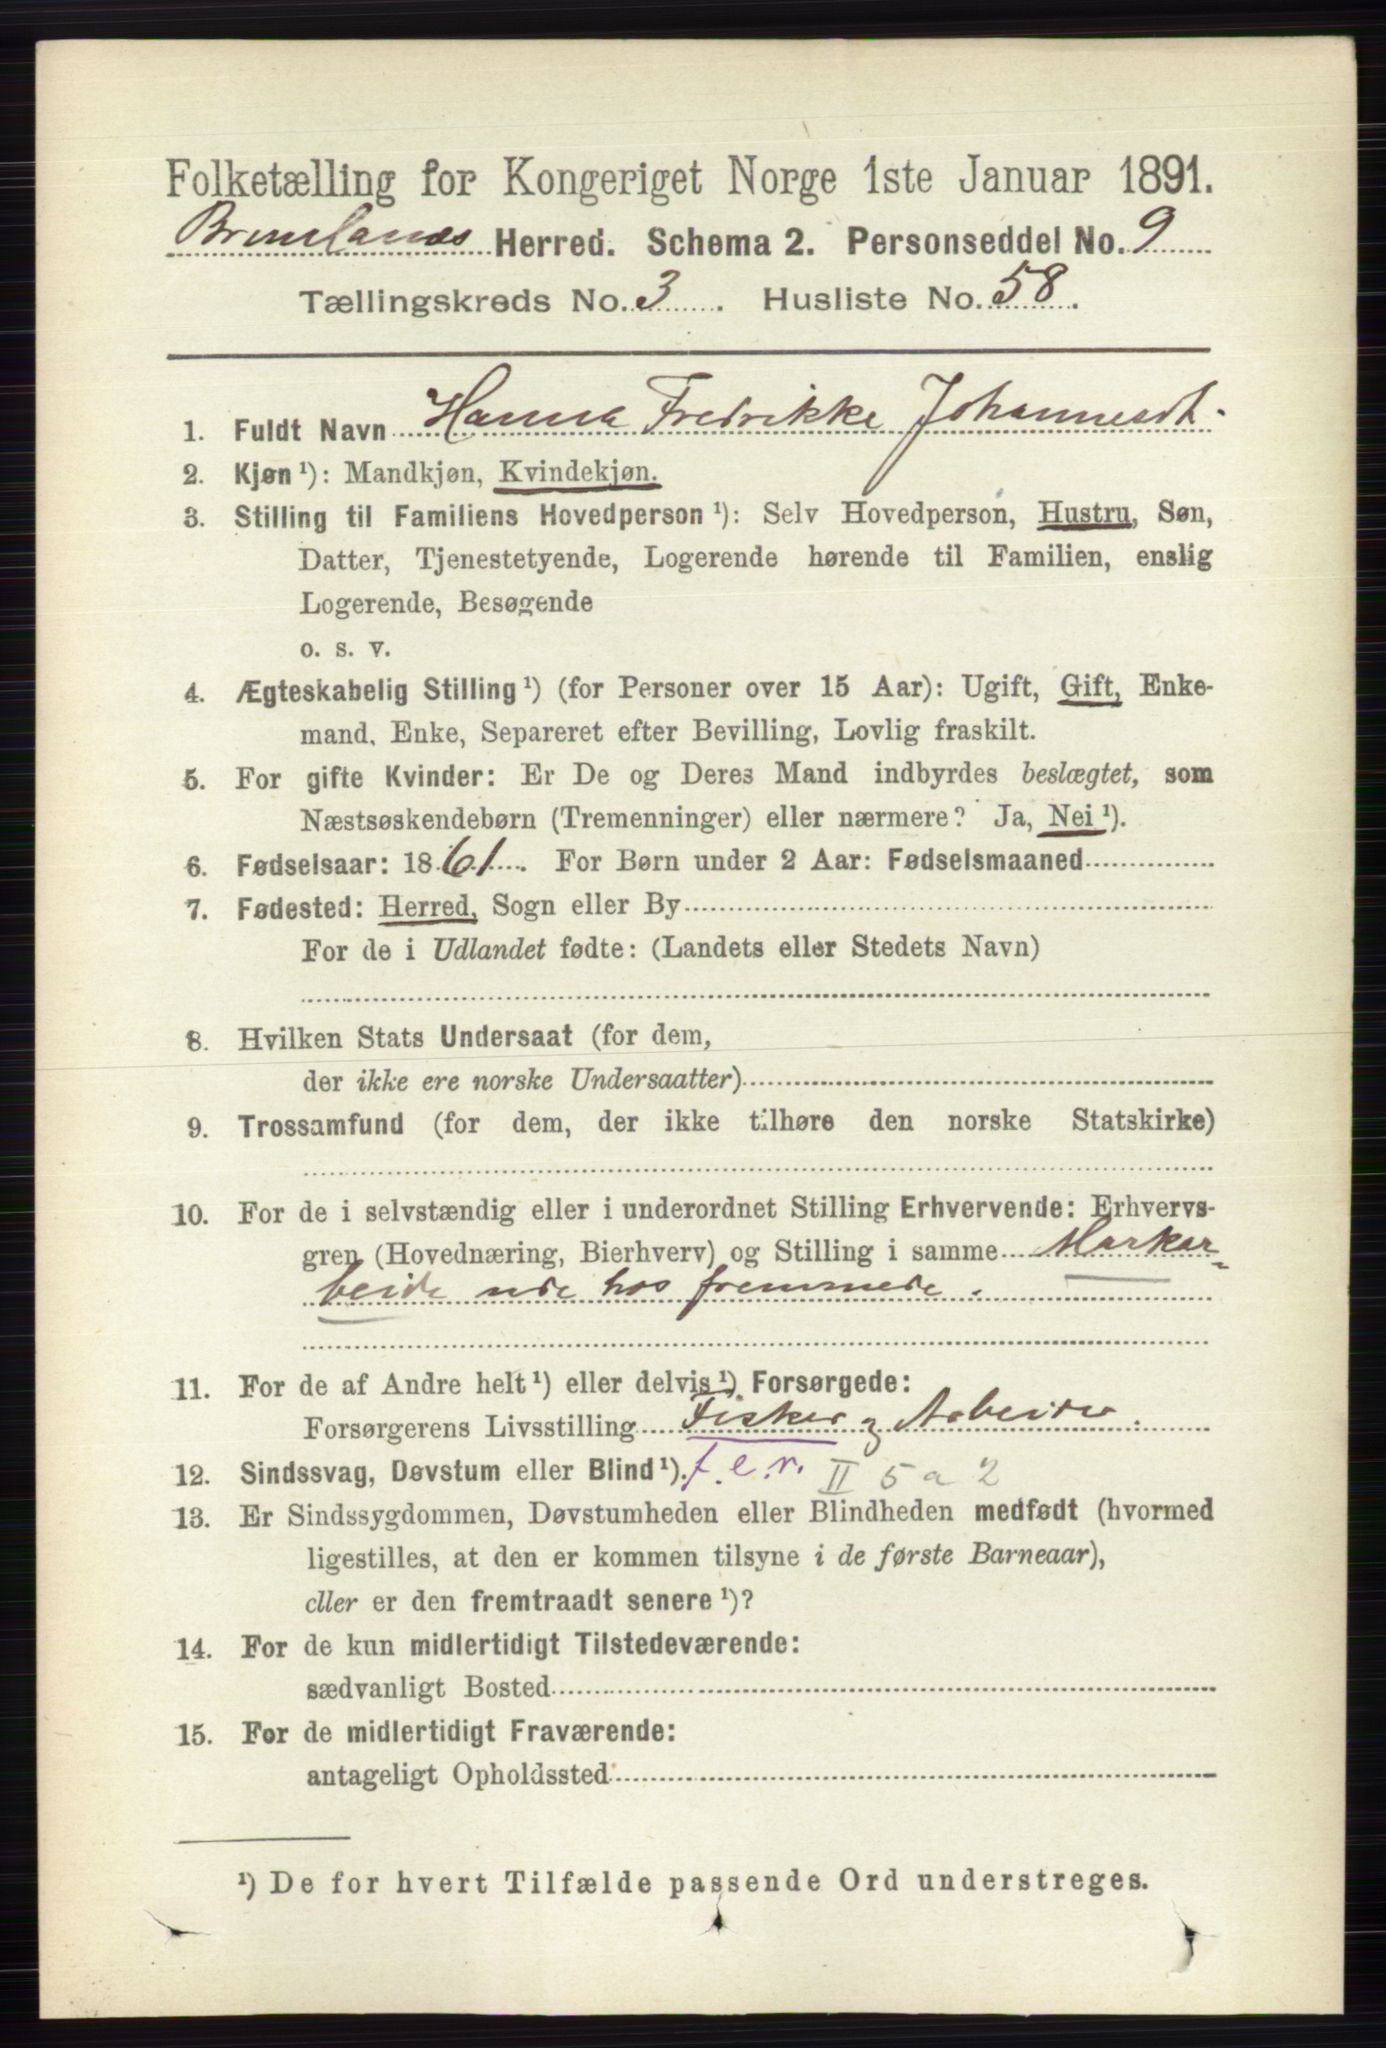 Folketælling for Kongeriget Norge 1ste Januar 1891.
Brunlanæs Herred. Schema 2. Personseddel No. 9
Tællingskreds No. 3. Husliste No. 58.
1. Fuldt Navn Hanna Fredrikke Johannesdt.
2. Kjøn ¹): Mandkjøn, Kvindekjøn.
3. Stilling til Familiens Hovedperson ¹): Selv Hovedperson, Hustru, Søn,
Datter, Tjenestetyende, Logerende hørende til Familien, enslig
Logerende, Besøgende
o. s. v.
4. Ægteskabelig Stilling ¹) (for Personer over 15 Aar): Ugift, Gift, Enke-
mand, Enke, Separeret efter Bevilling, Lovlig fraskilt.
5. For gifte Kvinder: Er De og Deres Mand indbyrdes beslægtet, som
Næstsøskendebørn (Tremenninger) eller nærmere? Ja, Nei ¹).
6. Fødselsaar: 1861. For Børn under 2 Aar: Fødselsmaaned
7. Fødested: Herred, Sogn eller By
For de i Udlandet fødte: (Landets eller Stedets Navn)
8. Hvilken Stats Undersaat (for dem,
der ikke ere norske Undersaatter)
9. Trossamfund (for dem, der ikke tilhøre den norske Statskirke)
10. For de i selvstændig eller i underordnet Stilling Erhvervende: Erhvervs-
gren (Hovednæring, Bierhverv) og Stilling i samme Markar-
beide ude hos fremmede.
11. For de af Andre helt ¹) eller delvis ¹) Forsørgede:
Forsørgerens Livsstilling Fisker og Arbeider.
12. Sindssvag, Døvstum eller Blind ¹). f. e. r. II 5 a 2
13. Er Sindssygdommen, Døvstumheden eller Blindheden medfødt (hvormed
ligestilles, at den er kommen tilsyne i de første Barneaar),
eller er den fremtraadt senere ¹)?
14. For de kun midlertidigt Tilstedeværende:
sædvanligt Bosted
15. For de midlertidigt Fraværende:
antageligt Opholdssted
¹) De for hvert Tilfælde passende Ord understreges.